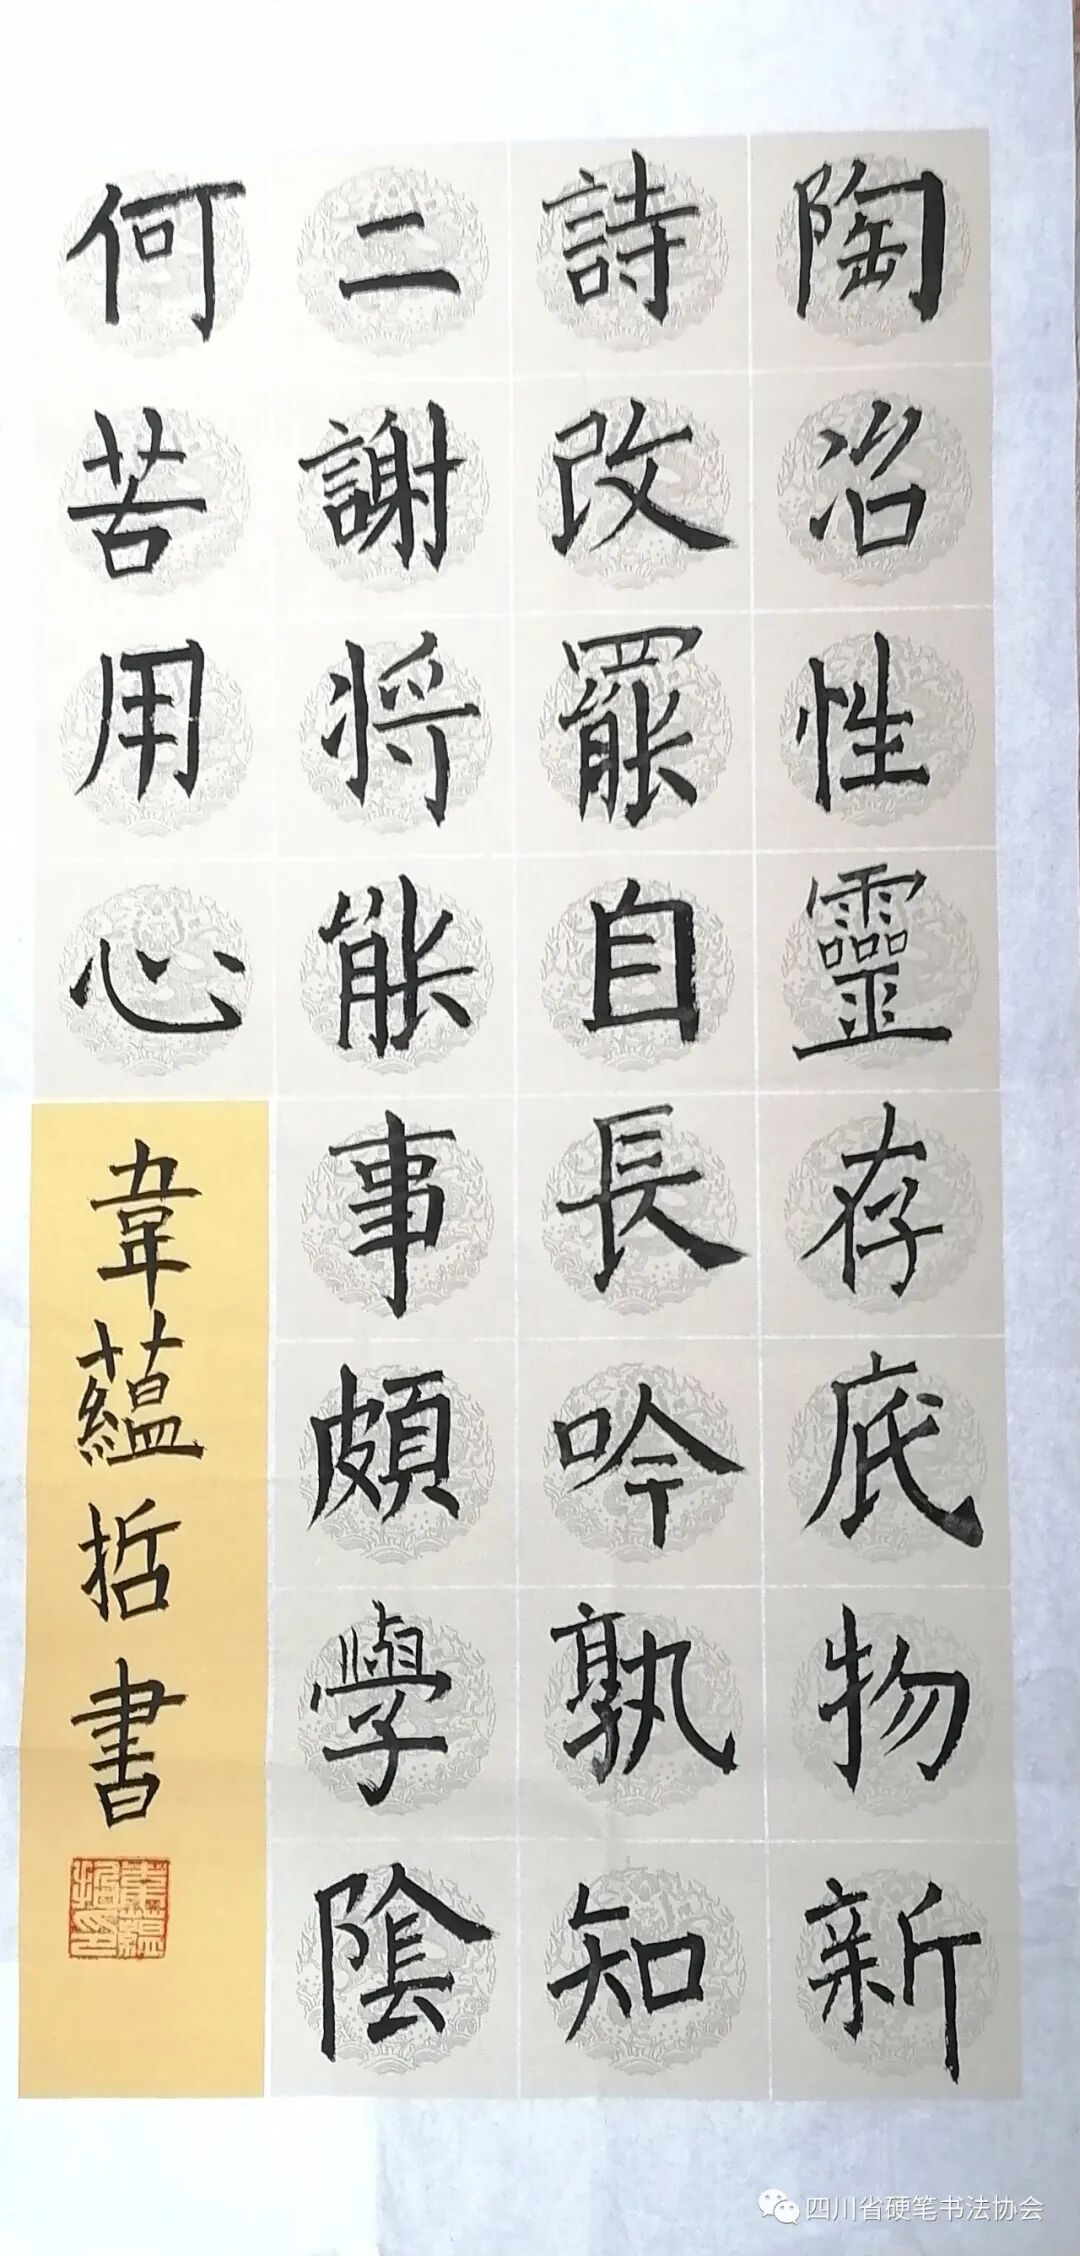 陶冶性靈存底物新
詩改罷自長吟孰知
二謝將能事頗學陰
何苦用心
韋蘊哲書
四川省硬笔书法协会